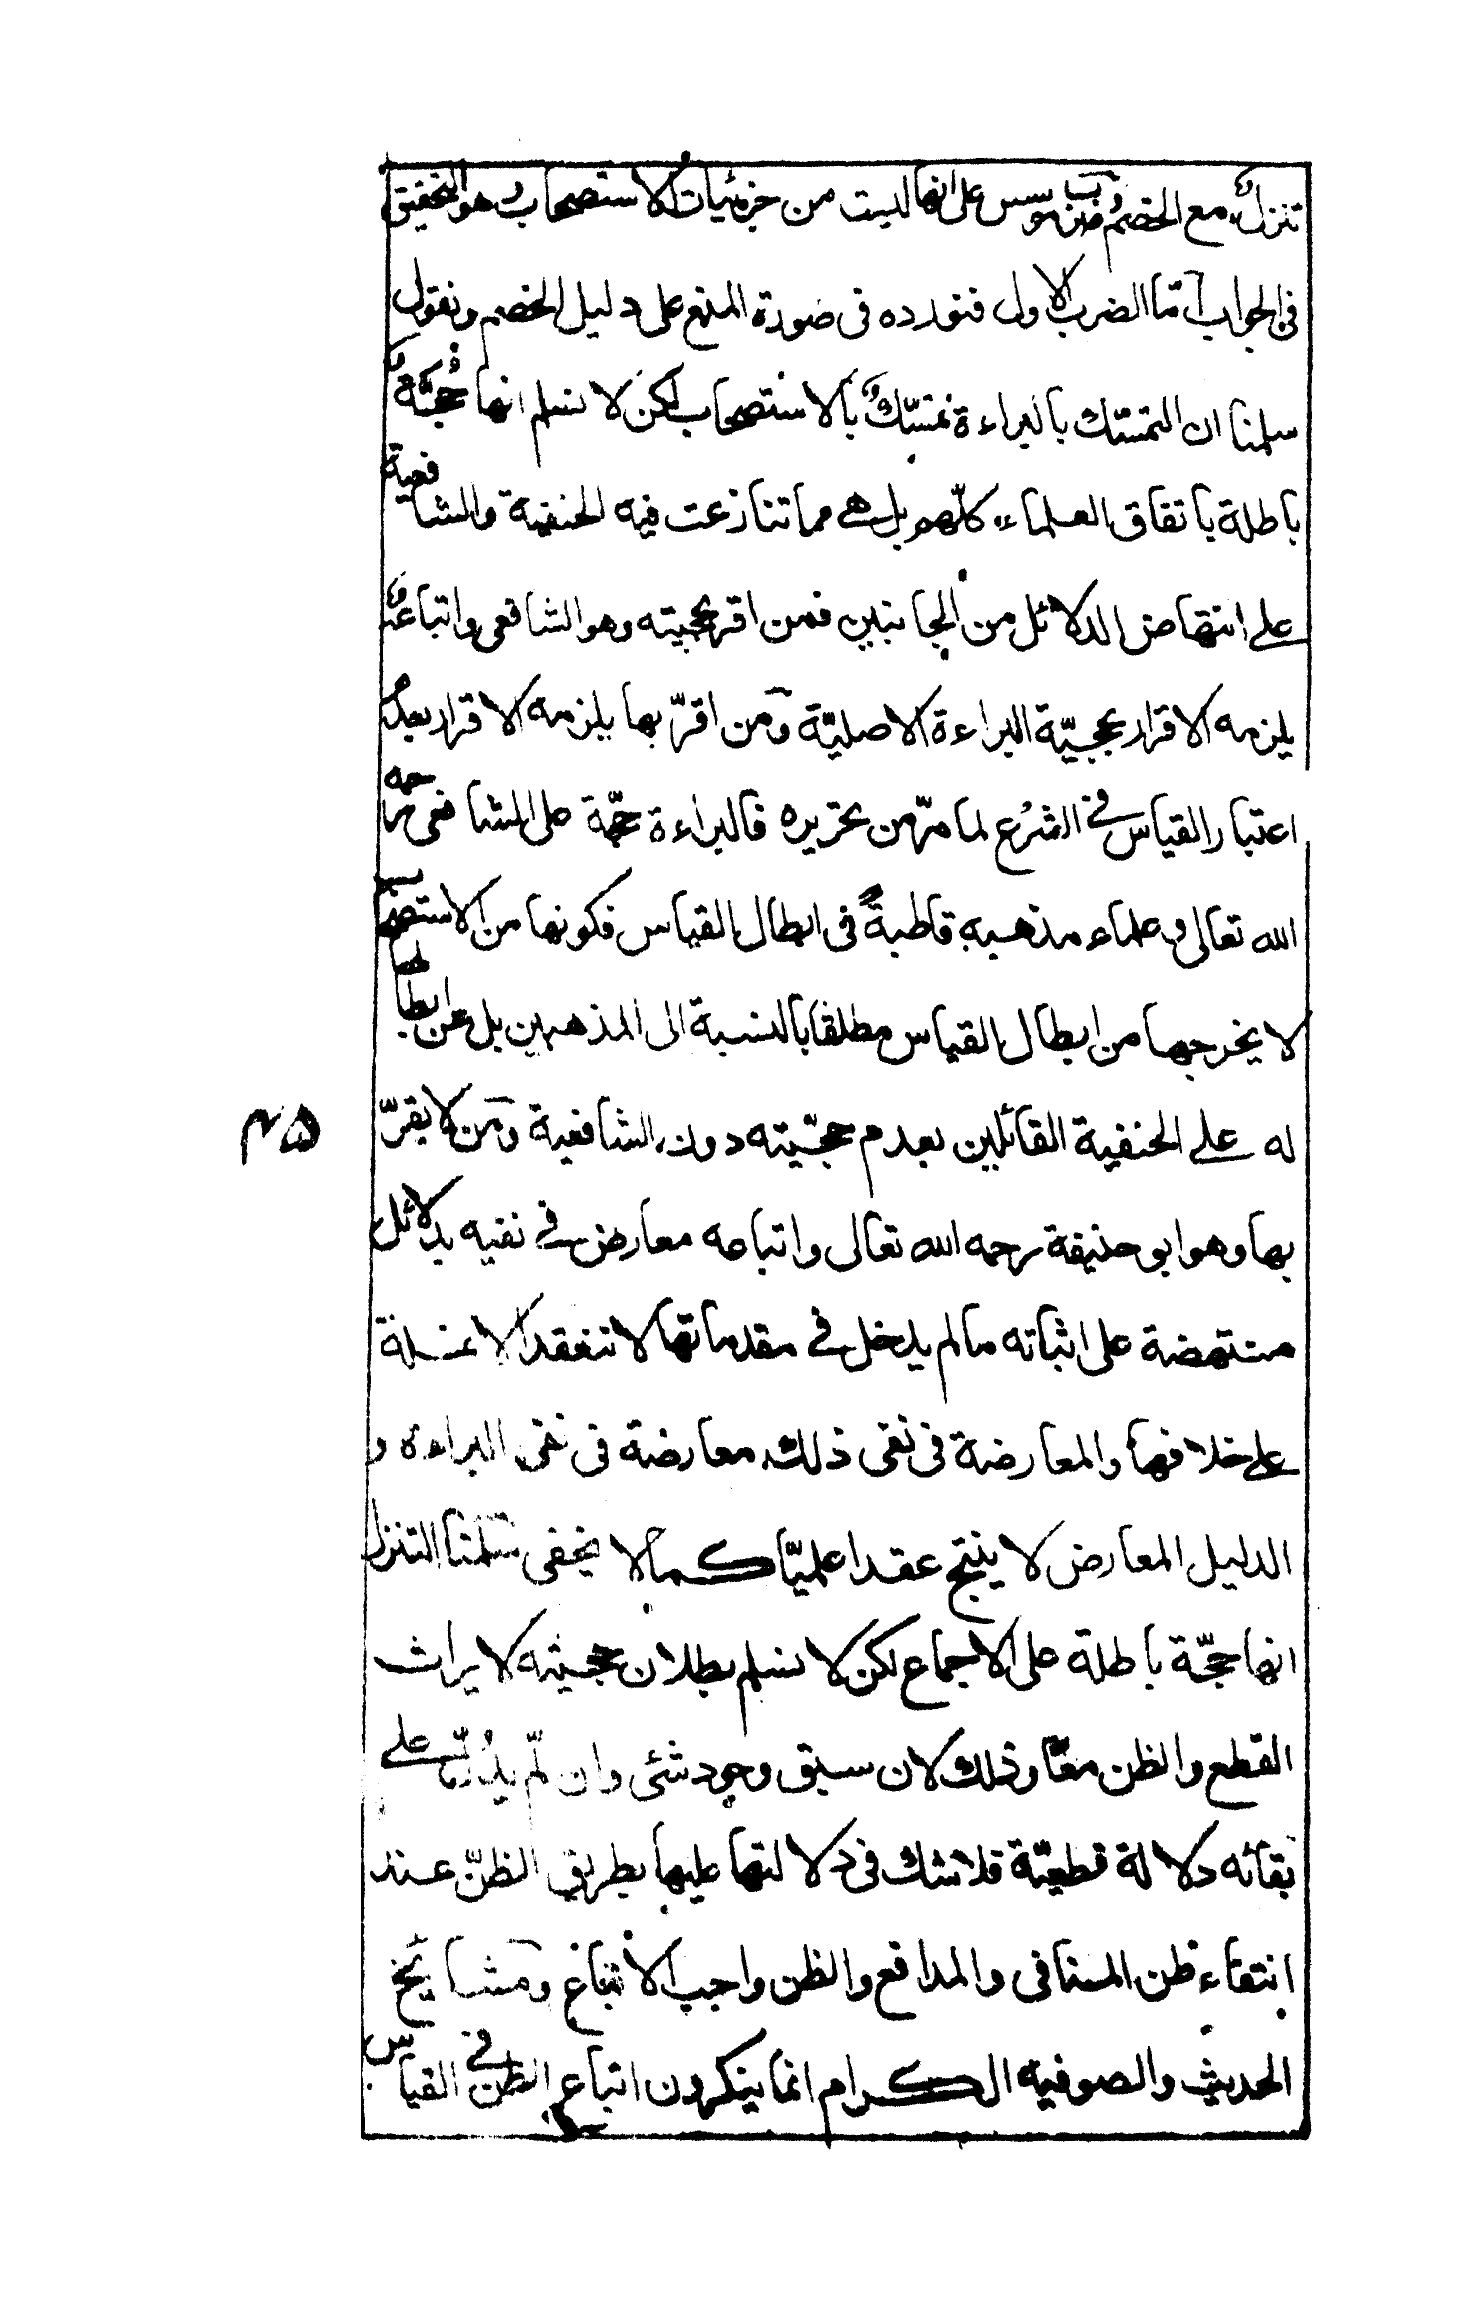 تنزل مع الخصم وضرب موسس على انها ليست من جزئيات الاستصحاب وهو التحقيق
فى الجواب آمّا الضرب الاول فنورده فى صورة المنع على دليل الخصم ونقول
سلمنا ان التمسّك بالبراءة تمسّكٌ بالاستصحاب لكن لا نسلم انها حُجّةٌ
باطلة باتفاق العلماء كلّهم بل هى مما تنازعت فيه الحنفية والشافعية
على انتهاض الدلائل من الجانبين فمن اقر بحجيته وهو الشافعى واتباعه
يلزمه الاقرار بحجيّة البراءة الاصليّة وَمن اقرّ بها يلزمه الاقرار بعدم
اعتبار القياس فى الشرع لما مرّ من تحريره فالبراءة حجّة على الشافعى رحمه
الله تعالى وعلماء مذهبه قاطبةً فى ابطال القياس فكونها من الاستصحاب
لا يخرجها من ابطال القياس مطلقا بالنسبة الى المذهبين بل عن ابطالها
له على الحنفية القائلين بعدم حجّيته دون الشافعية وَمن لا يقرّ
بها وهو ابو حنيفة رحمه الله تعالى واتباعه معارض فى نفيه بدلائل
منتهضة على اثباته ما لم يدخل فى مقدماتها لا تنعقد الا
على خلافها والمعارضة فى نفى ذلك معارضة فى نفى البراءة و
الدليل المعارض لا ينتج عقدا علميّا كما لا يخفى سَلّمنا التنزل
انها حجّة باطلة على الاجماع لكن لا نسلم بطلان حجيته لايراث
القطع والظن معًا وذلك لان سبق وجود شئى وان لّم يدُلّ على
بقائه دلالة قطعيّة فلاشك فى دلالتها عليها بطريق الظنّ عند
انتفاء ظن المنافى والمدافع والظن واجب الاتباع وَمشايخ
الحديث والصوفيه الكرام انما ينكرون اتباع الظن فى القياس
۴۵